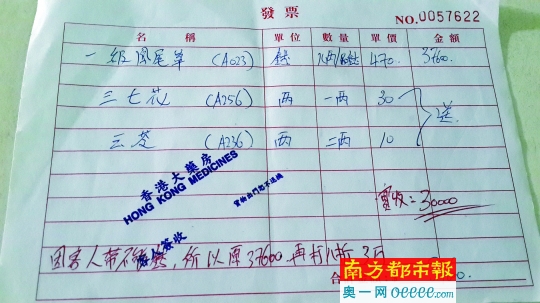 發票
NO.0057622
名稱 單位 數量 單價 金額
一級鳳尾草 (A023) 錢 470. 37600.
三七花 (A256) 两 一两 30 送
云苓 (A236) 两 二两 10
香港大藥房
HONG KONG MEDICINES
貨物出門恕不退換
實收=30000
因客人带不 所以原37600再打八折 3万
合
南方都市報
奥一网oeeee.com